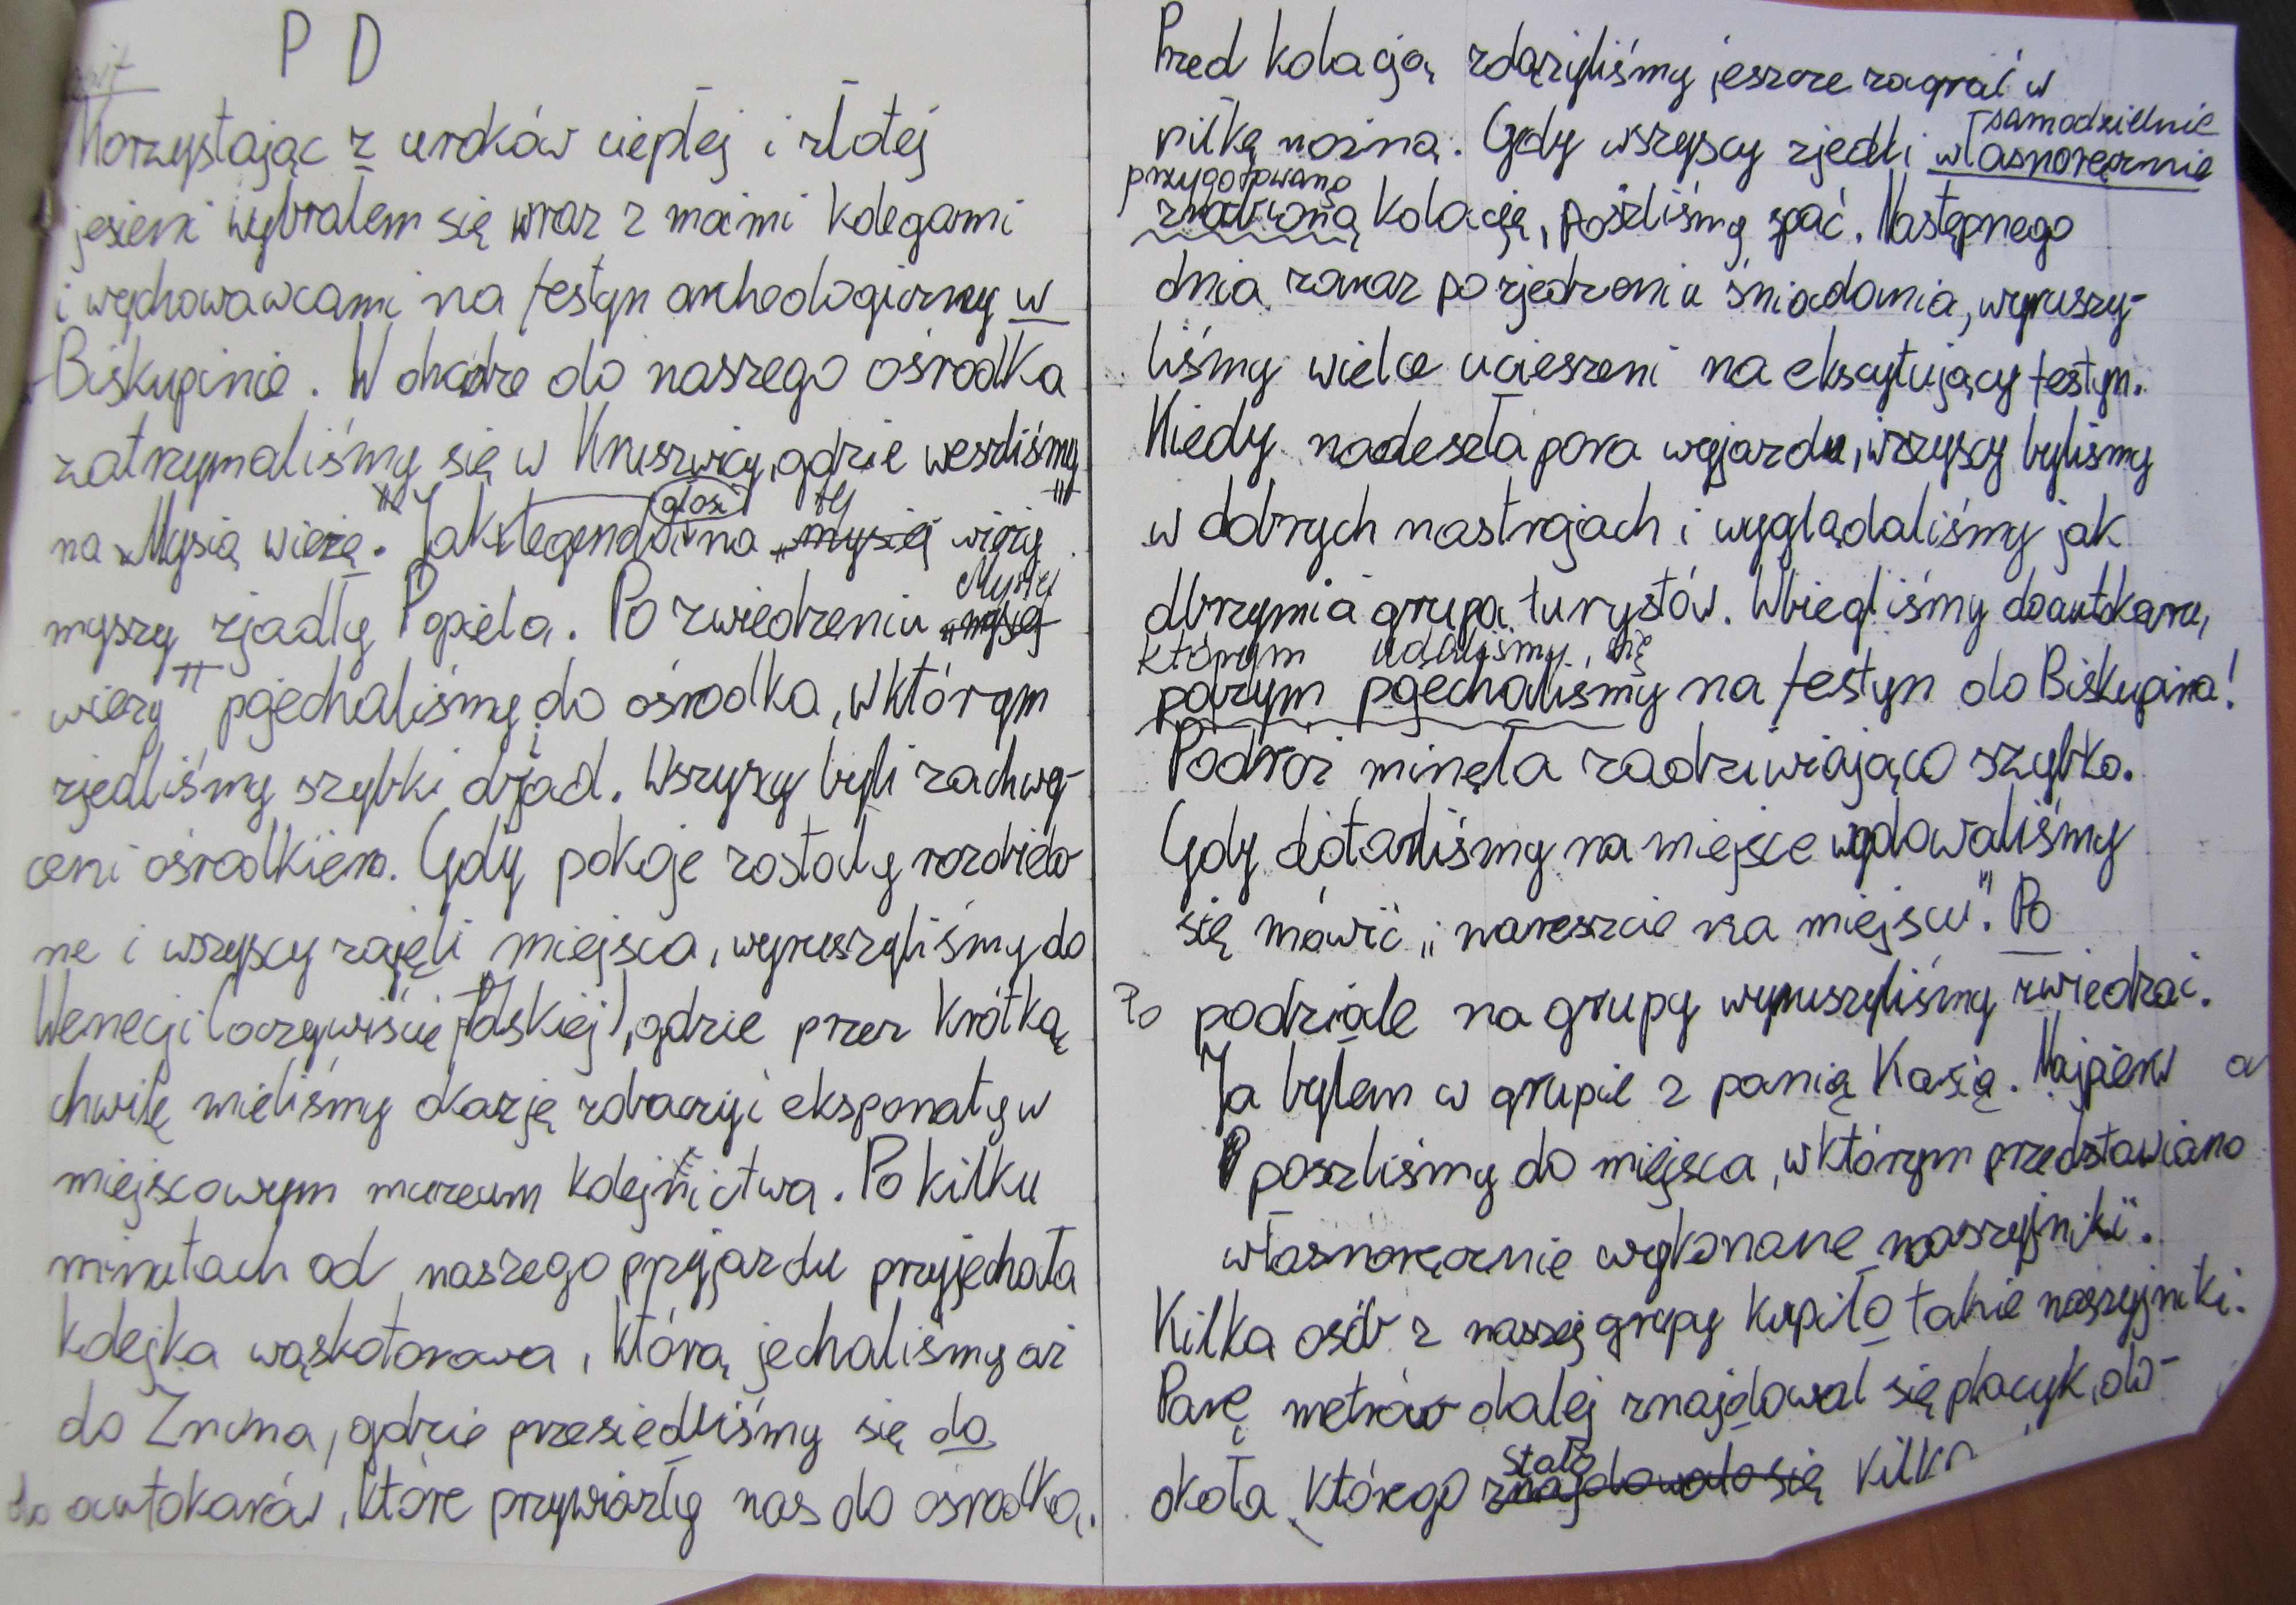 P D
Korzystając z uroków ciepłej i złotej
jesieni wybrałem się wraz z moimi kolegami
i wychowawcami na festyn archeologiczny w
Biskupinie. W drodze do naszego ośrodka
zatrzymaliśmy się w Kruszwicy, gdzie weszliśmy
na „Mysią wieżę". Jak legenda głosi na tej „mysiej wieży"
myszy zjadły Popiela. Po zwiedzeniu „Mysiej
wieży" pojechaliśmy do ośrodka, w którym
zjedliśmy szybki objad. Wszyscy byli zachwy-
ceni ośrodkiem. Gdy pokoje zostały rozdielo
ne i wszyscy zajęli miejsca, wyruszyliśmy do
Wenecji (oczywiście Polskiej), gdzie przez krótką
chwilę mieliśmy okazję zobaczyć eksponaty w
miejscowym muzeum kolejnictwa. Po kilku
minutach od naszego przyjazdu przyjechała
kolejka wąskotorowa, którą jechaliśmy aż
do Żnina, gdzie przesiedliśmy się do
do autokarów, które przywiozły nas do ośrodka.
Przed kolacją zdążyliśmy jeszcze zagrać w
piłkę nożną. Gdy wszyscy zjedli własnoręcznie
samodzielnie
przygotowaną
zrobioną kolację, poszliśmy spać. Następnego
dnia zaraz po zjedzeniu śniadania, wyruszy-
liśmy wielce ucieszeni na ekscytujący festyn.
Kiedy nadeszła pora wyjazdu, wszyscy byliśmy
w dobrych nastrojach i wyglądaliśmy jak
olbrzymia grupa turystów. Wbiegliśmy do autokaru,
którym udaliśmy się
pojechaliśmy na festyn do Biskupina!
Podróż minęła zadziwiająco szybko.
Gdy dotarliśmy na miejsce wydawaliśmy
się mówić „nareszcie na miejscu". Po
Po podziale na grupy wyruszyliśmy zwiedzać.
Ja byłem w grupie z panią Kasią. Najpierw
poszliśmy do miejsca, w którym przedstawiano
własnoręcznie wykonane naszyjniki.
Kilka osób z naszej grupy kupiło takie naszyjniki.
Parę metrów dalej znajdował się placyk, do-
okoła którego znajdowało się kilka
stało